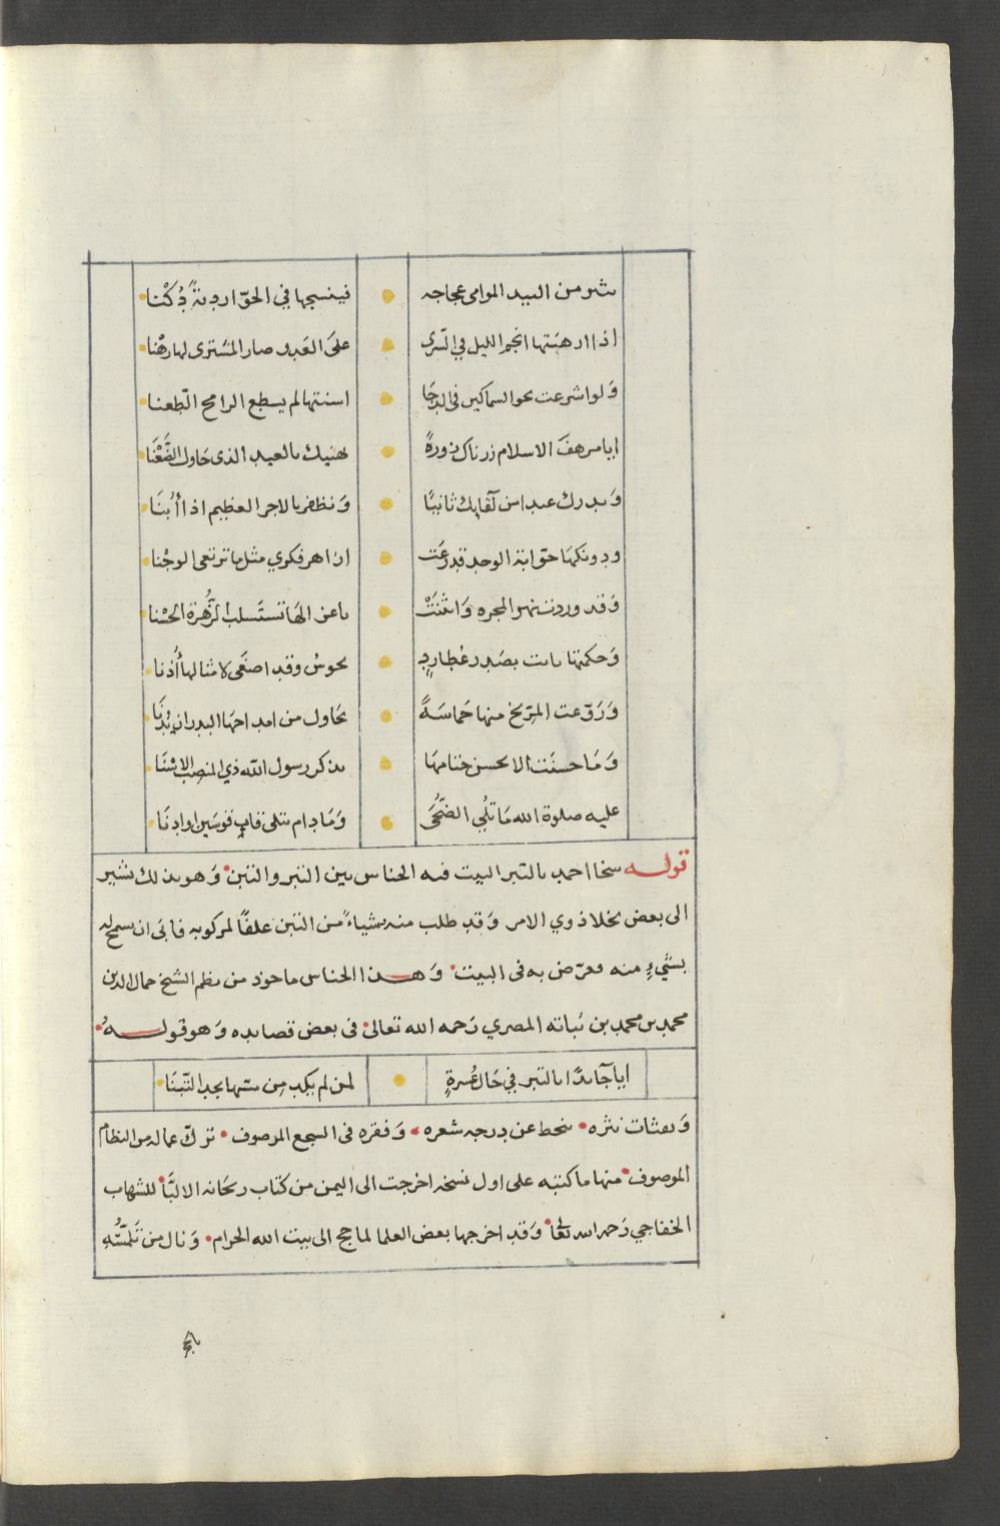 تثير من البيد الموامى عجاجه فينسجها في الحوّ اردنةً دُكْنا
اذا ارهنتها انجم الليل في السّرى على الغبد صار المشترى لها رهْنا
وَلو اشرعت نحو السماكين فى الدجَا اسنتها لم يسطع الرامح الطّعنا
ايا مرهفَ الاسلام زرناك زورةً نهنيك بالعيد الذى حَاول
وَيدرك عيدا من لقايك ثانيًا وَتظفر بالاجر العظيم اذا أُبنَا
ودونكهَا حوّانة الوجد قد رعَت ازاهر فكري مثل ما ترتعى الوجْنا
وَقد وردت نهر المجره وَانثنتْ تستَسلب الزُّهرة الحسْنا
وَحكمتها باتت بصَدر عُطاردٍ بحوسُ وقد اصغَى لامثالها أُذنا
وَرَوّعت المرّيخ منها حَماسَةً تحَاول من امداحهَا البدر ان يُدْنَا
وَمَا حسنَت الا بحسن ختامهَا بذكر رسول الله ذي المنصب الاسْنَا
عليه صلوة الله مَا تلي الضُّحَى وَمَا دام تتلى قاب قوسَين او ادنَا
قولــه سخا احمد بالتبر البيت فيه الجناس بين التبر والتبن وَهو بذلك يشير
الى بعض بخلا ذوي الامر وَقد طلب منه شياءً من التبن علفًا لمركوبه فابَى ان يسمح له
بشيءٍ منه فعرّض به فى البيت وَهــذا الجناس ماخوذ من نظم الشيخ جمال الدين
محمد بن محمد بن نُباته المصري رَحمه الله تعالى فى بعض قصايده وَهو قولــــهُ
ايا جَآئدًا بالتبر في حَال عُسرةٍ لمن لم يكد من يجد التّبنَا
وَنفثات نثره ينحط عن درجه شعره وَفقره فى السجع الموصوف تركّ عماله من النظام
الموصوف منها ما كتبه على اول نسخه اخرجت الى اليمن من كتاب ريحانه الالبَّا للشهاب
الخفاجي رَحمه الله تعا وَقد اخرجها بعض العلما لما حج الى بيت الله الحرام وَنال من